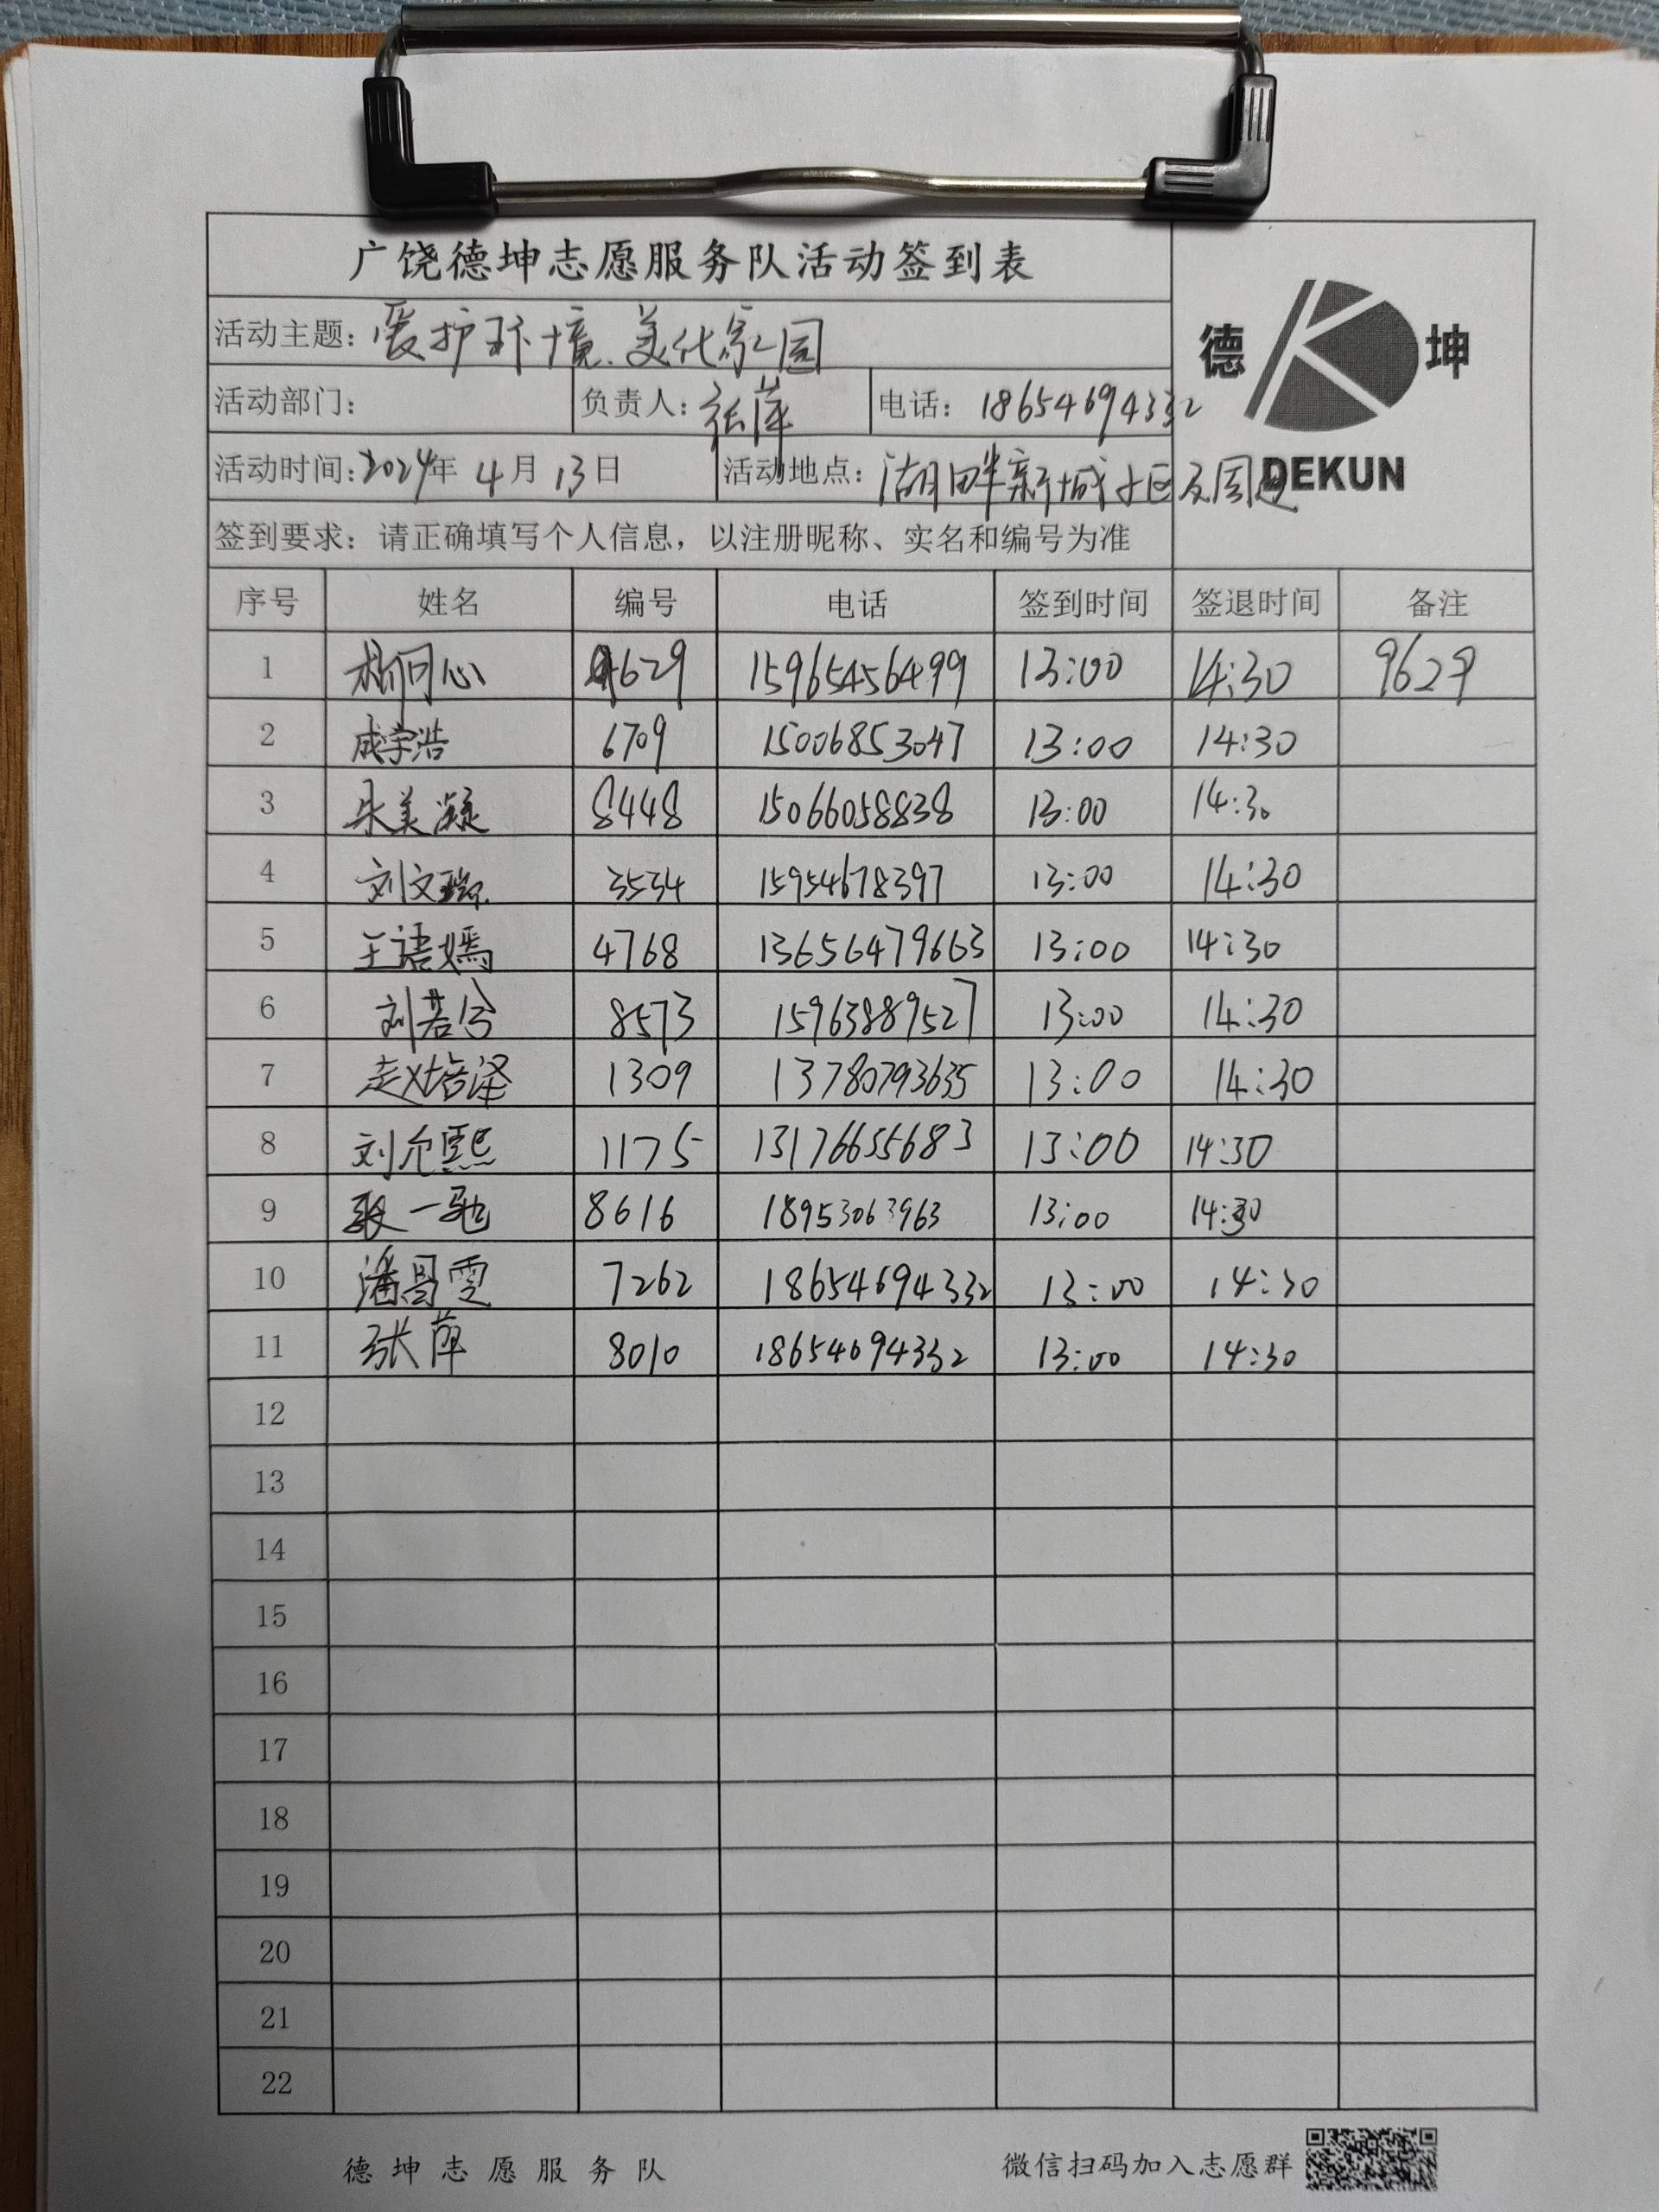 广饶德坤志愿服务队活动签到表
活动主题：爱护环境.美化家园
德 坤
活动部门： 负责人：张萍 电话：18654694332
活动时间：2024年4月13日 活动地点：湖畔新城小区及周边
DEKUN
签到要求：请正确填写个人信息，以注册昵称、实名和编号为准
序号 姓名 编号 电话 签到时间 签退时间 备注
1 同心 9629 15965456499 13:00 14:30 9629
2 成宇浩 6709 15006853047 13:00 14:30
3 朱美凝 8448 15066058838 13:00 14:30
4 刘文瑞 3534 15954678397 13:00 14:30
5 王语嫣 4768 13656479663 13:00 14:30
6 刘若兮 8573 15963889527 13:00 14:30
7 赵培泽 1309 13780793635 13:00 14:30
8 刘允熙 1175 13176655683 13:00 14:30
9 一驰 8616 18953063963 13:00 14:30
10 潘昌雯 7262 18654694332 13:00 14:30
11 张萍 8010 18654694332 13:00 14:30
12
13
14
15
16
17
18
19
20
21
22
德坤志愿服务队 微信扫码加入志愿群